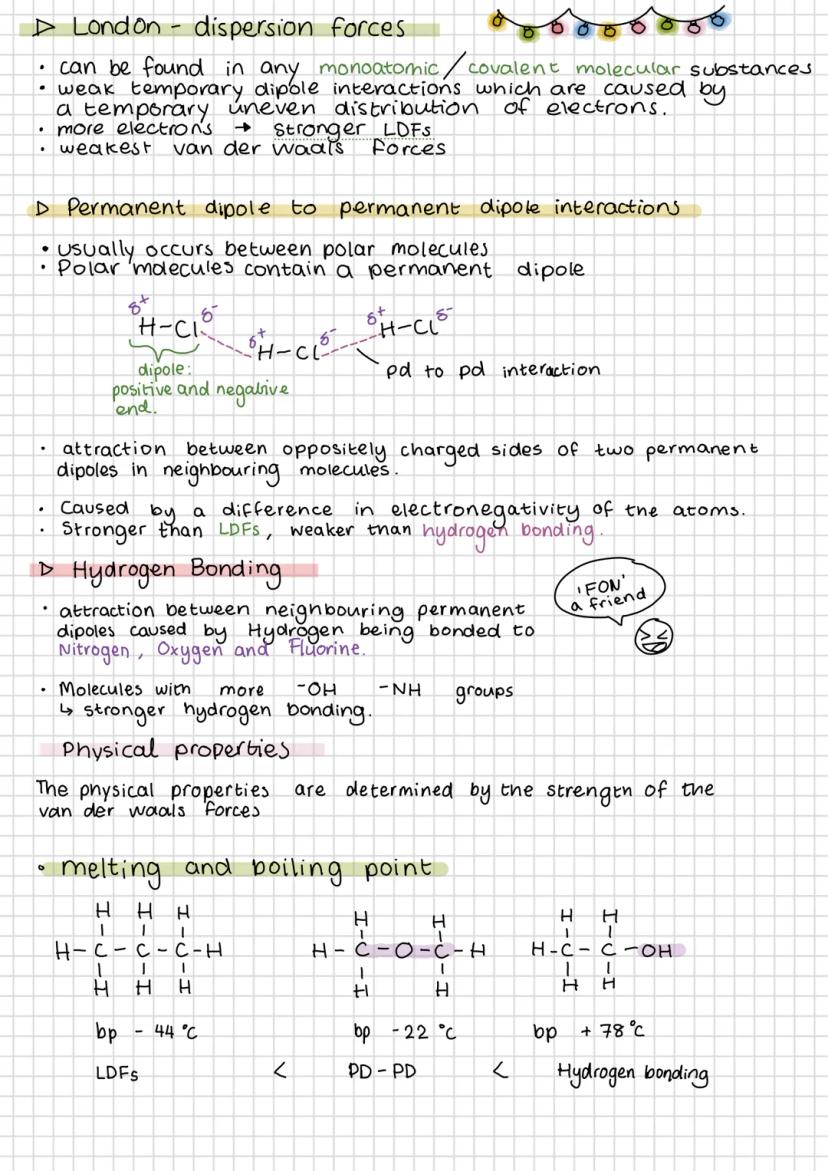 ▷ London - dispersion forces
• can be found in any monoatomic / covalent molecular substances
• weak temporary dipole interactions which are caused by
a temporary uneven distribution of electrons.
• more electrons → stronger LDFs
• weakest van der Waals forces
▷ Permanent dipole to permanent dipole interactions
• usually occurs between polar molecules
• Polar molecules contain a permanent dipole
δ+ δ- δ+ δ- δ+ δ-
H-Cl H-Cl H-Cl
dipole:
positive and negative
end.
pd to pd interaction
• attraction between oppositely charged sides of two permanent
dipoles in neighbouring molecules.
• Caused by a difference in electronegativity of the atoms.
• Stronger than LDFs, weaker than hydrogen bonding.
▷ Hydrogen Bonding
'FON'
a friend
• attraction between neighbouring permanent
dipoles caused by Hydrogen being bonded to
Nitrogen, Oxygen and Fluorine.
• Molecules with more -OH -NH groups
↳ stronger hydrogen bonding.
Physical properties
The physical properties are determined by the strength of the
van der waals forces
• melting and boiling point
H H H H H H H
H-C-C-C-H H-C-O-C-H H-C-C-OH
H H H H H H H
bp - 44 °C bp -22 °C bp +78 °C
LDFs < PD-PD < Hydrogen bonding